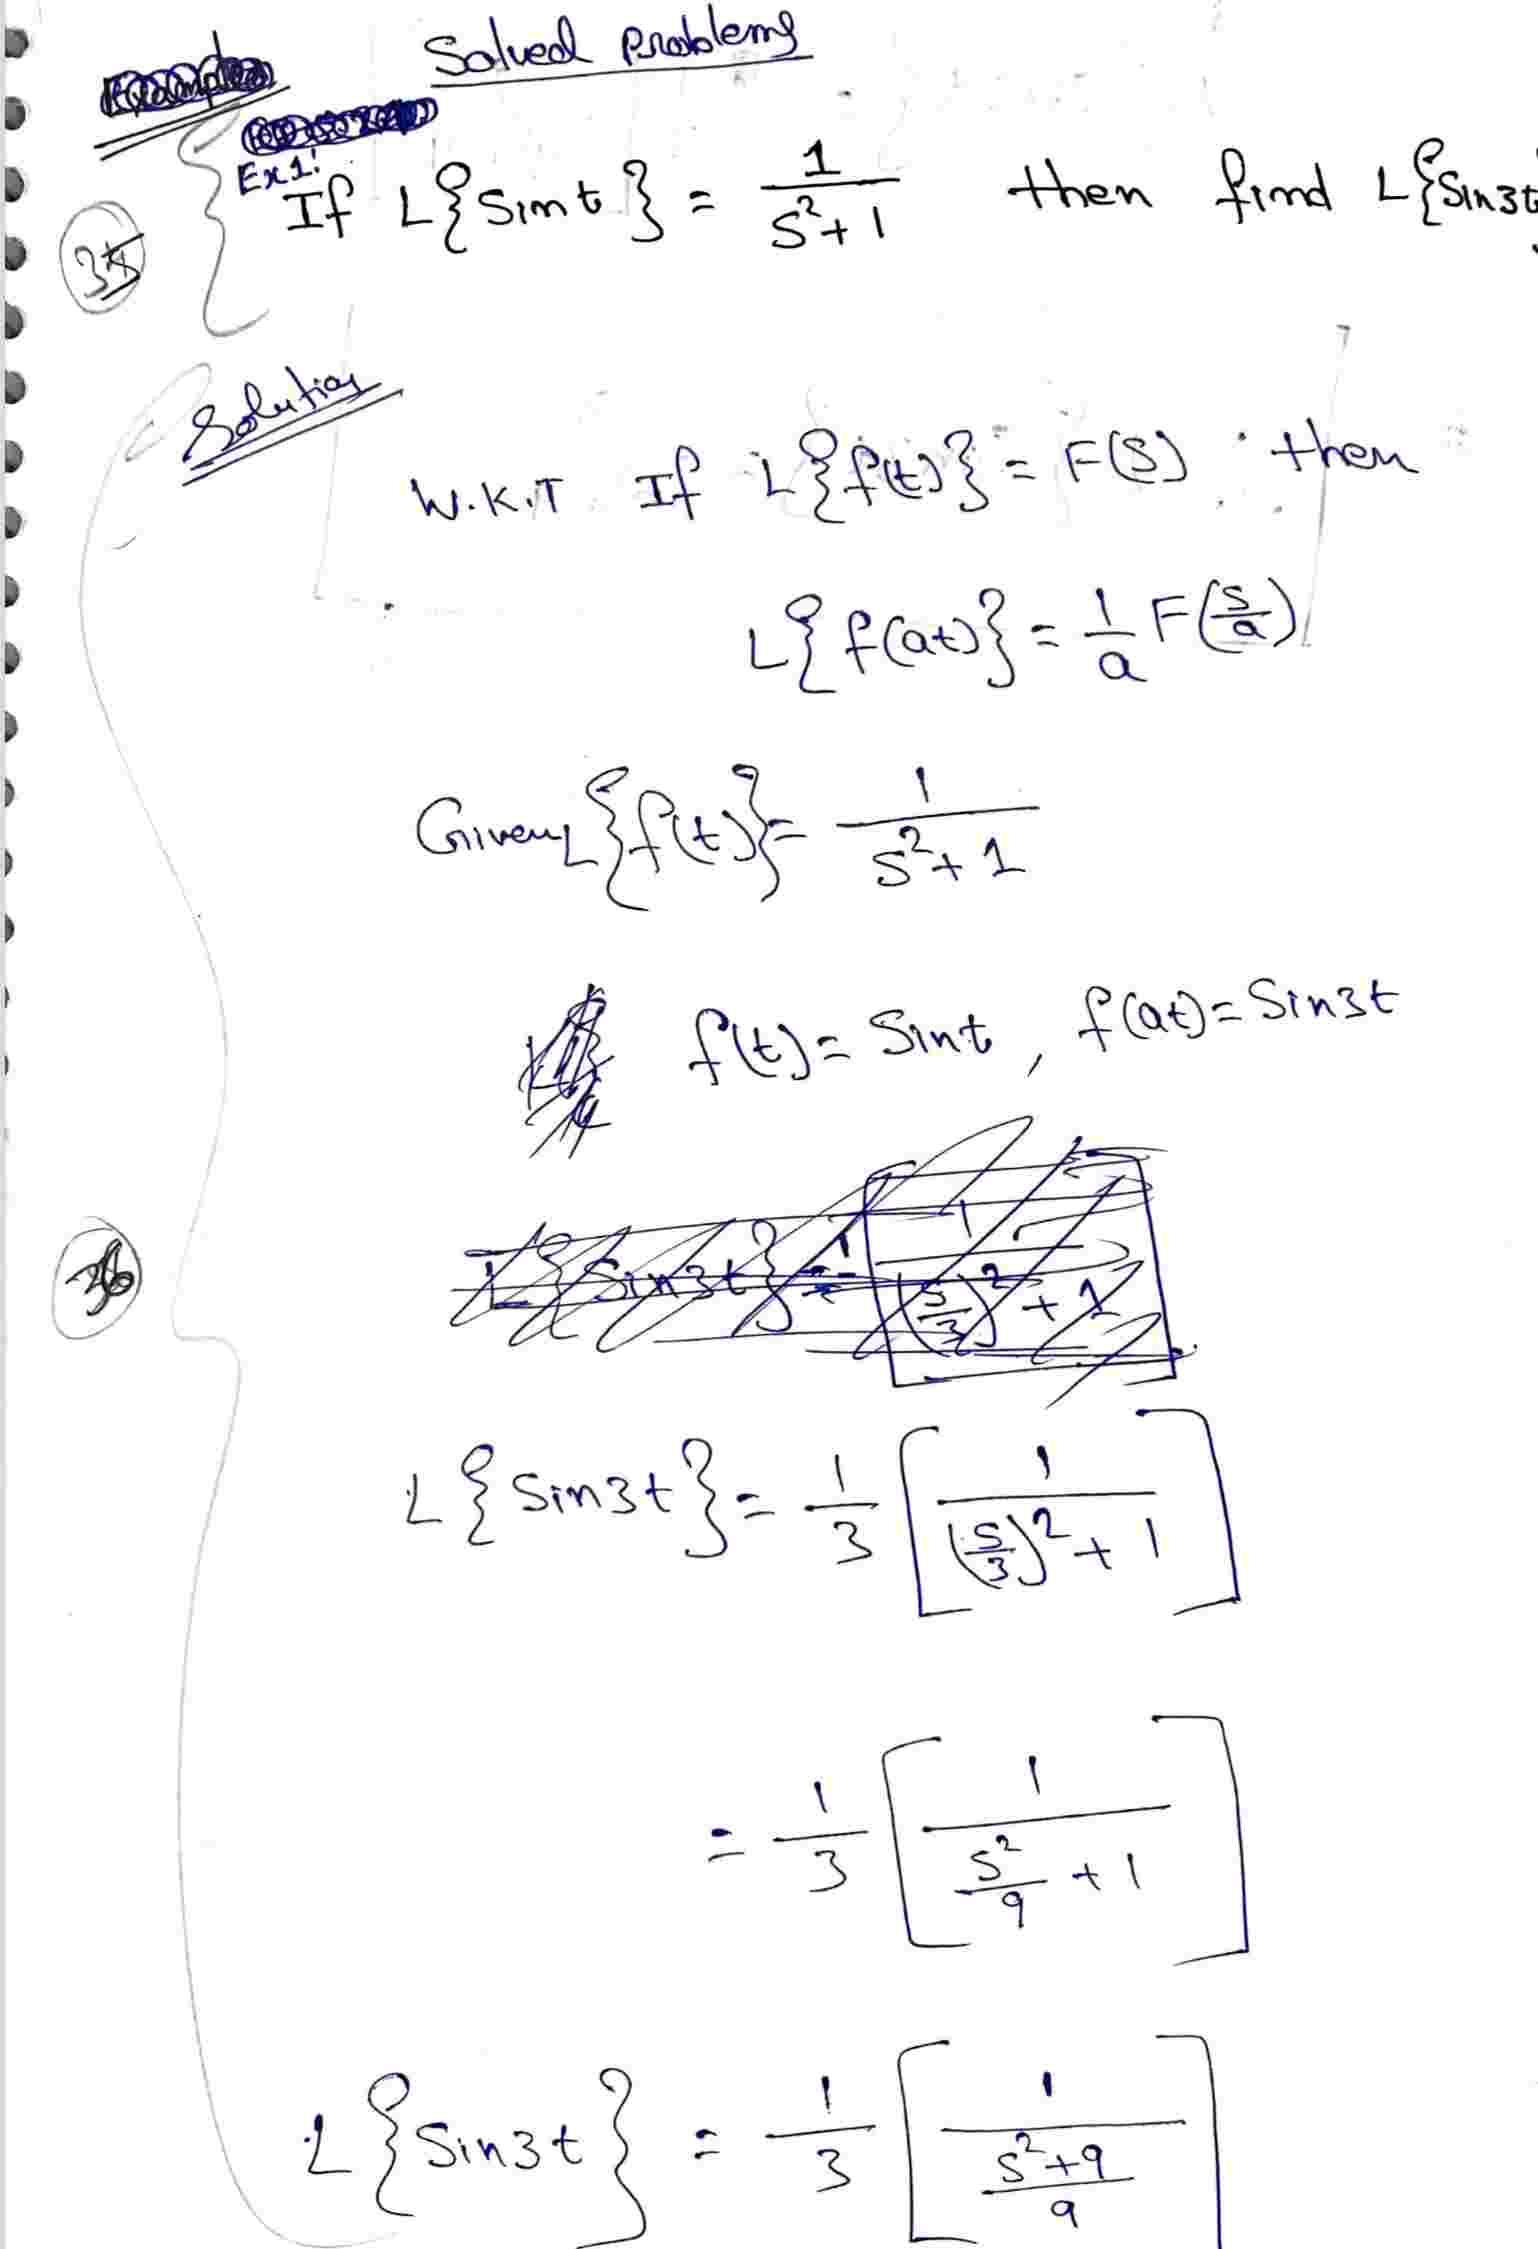 Solved Problems
Ex1:
If L{Sint} = 1/(S²+1) then find L{Sin3t
35
Solution
W.K.T If L{f(t)} = F(S) then
L{f(at)} = 1/a F(s/a)
Given L{f(t)} = 1/(S²+1)
f(t) = Sint, f(at) = Sin3t
L{Sin3t} = 1/((s/3)²+1)
36
L{Sin3t} = 1/3 [1/((s/3)²+1)]
= 1/3 [1/(s²/9 + 1)]
L{Sin3t} = 1/3 [1/((s²+9)/9)]